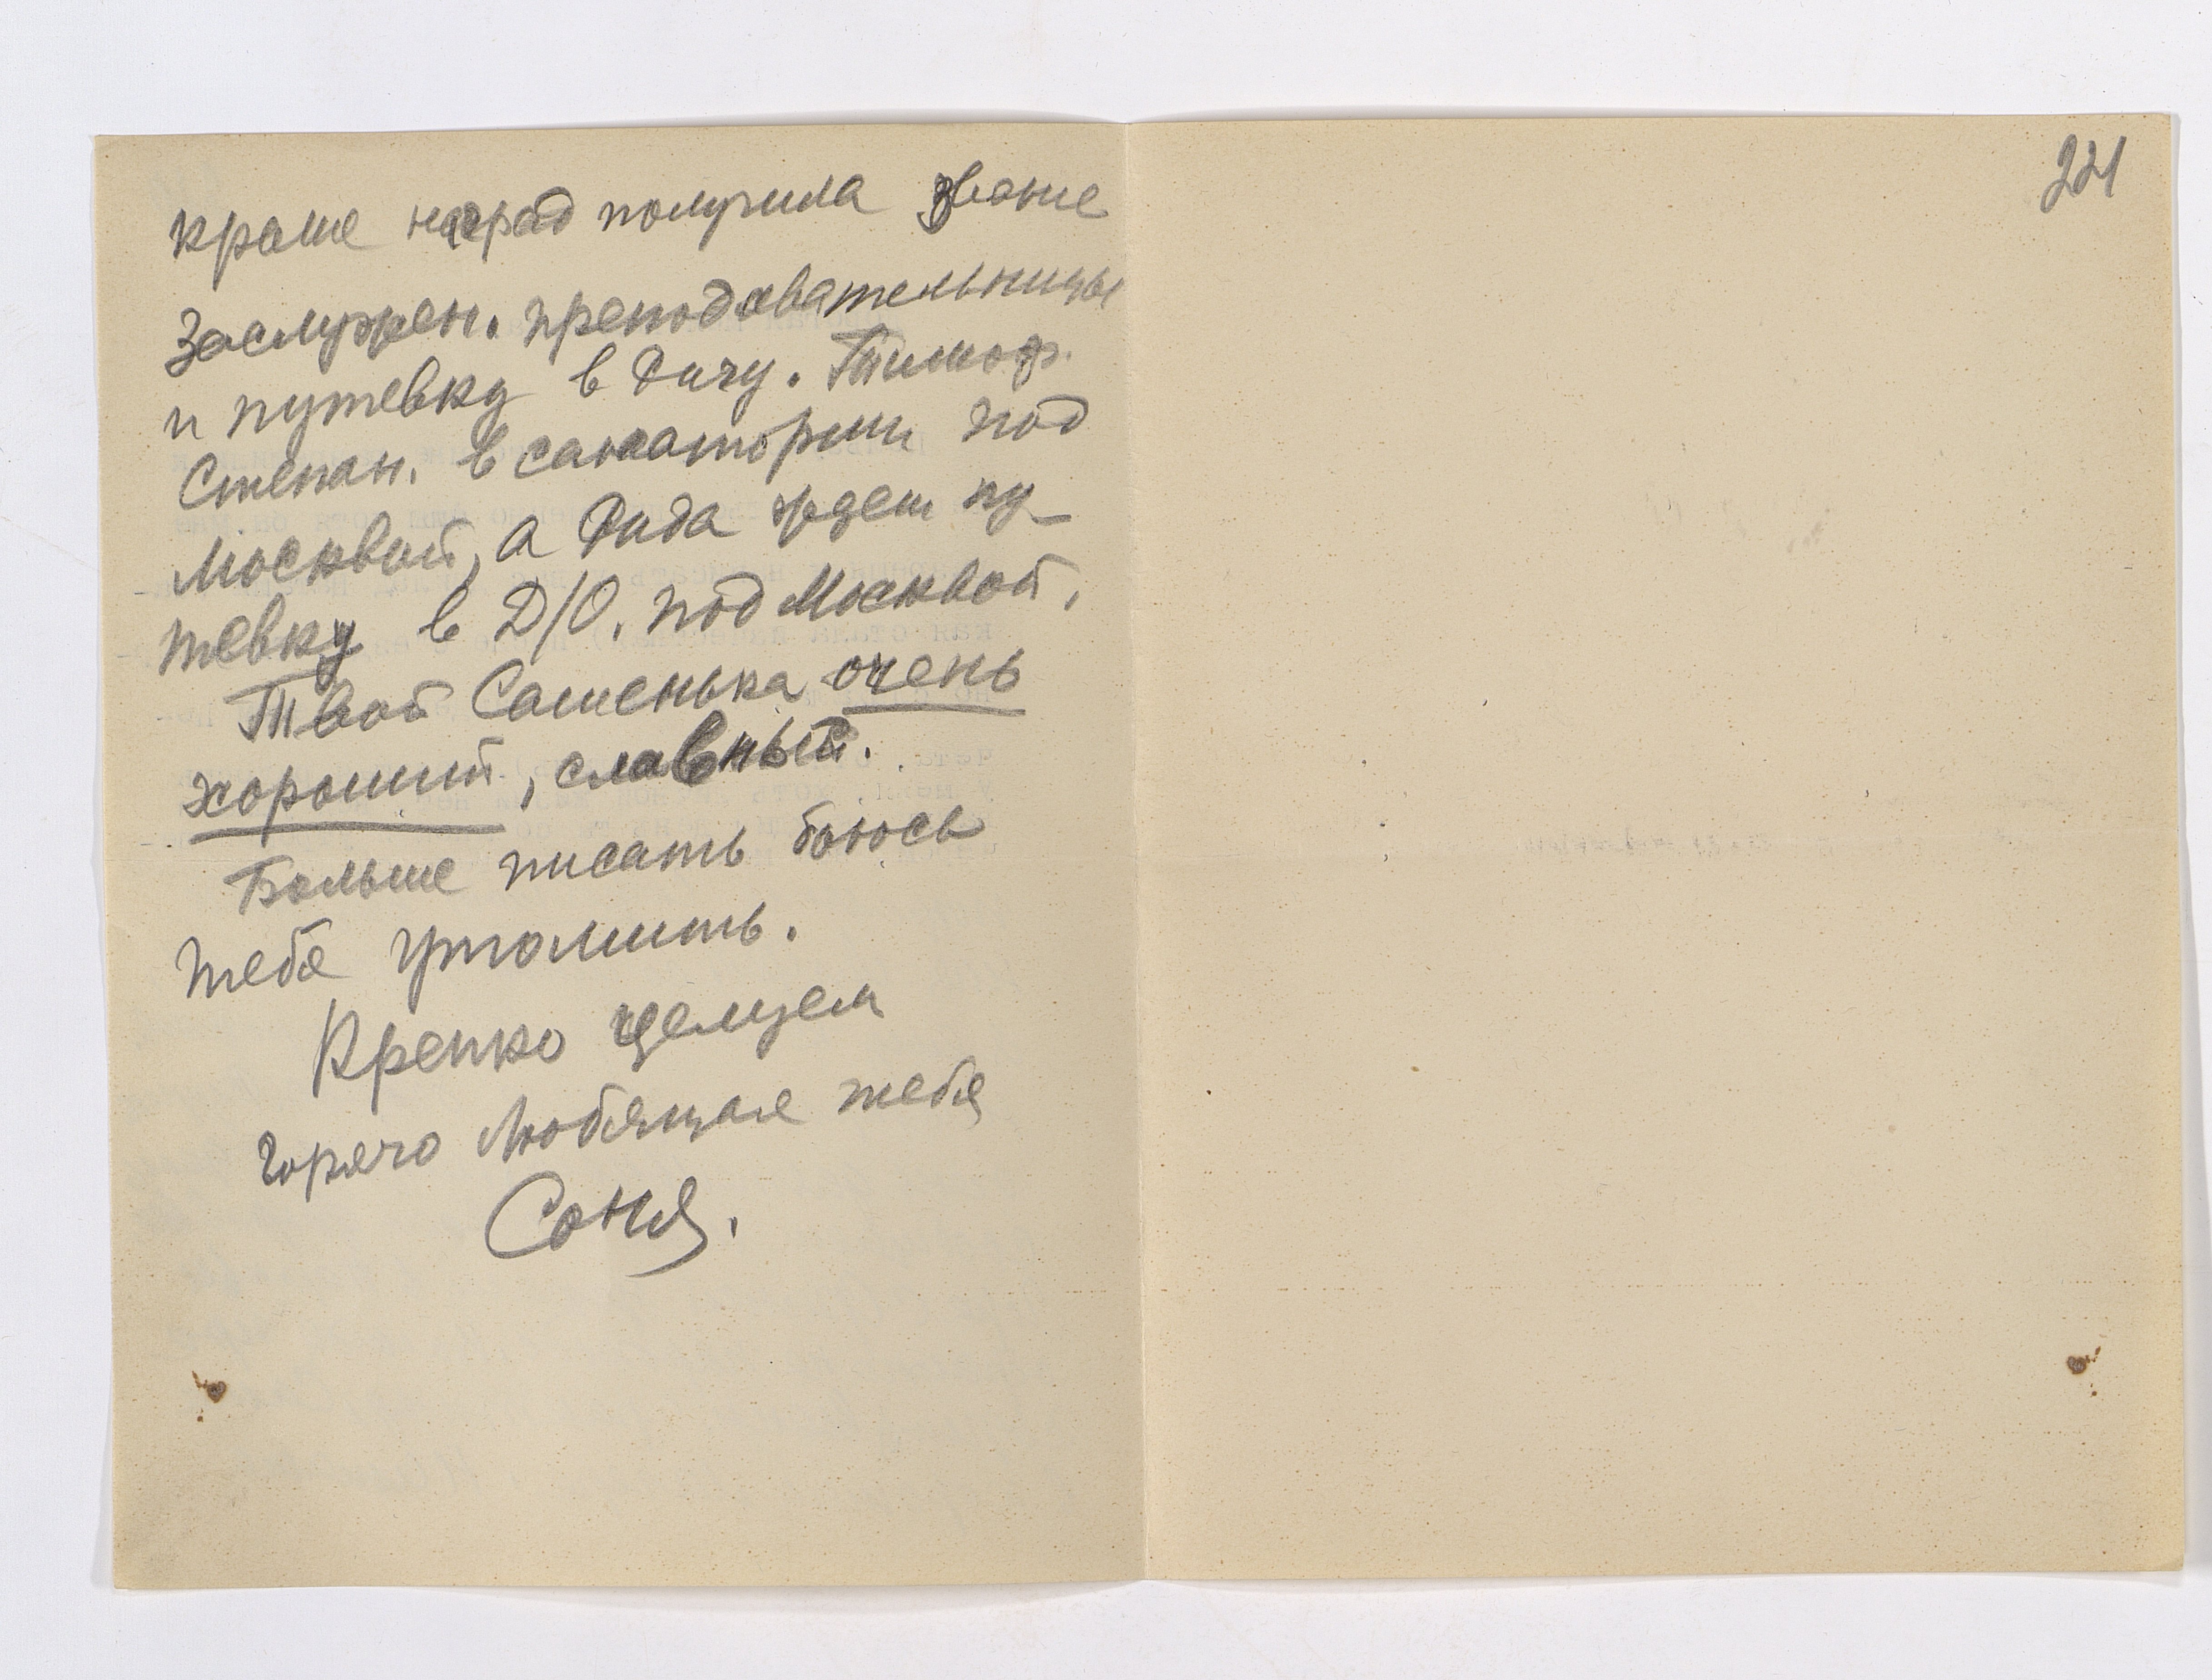 221
кроме наград получила звание
Заслужен. преподавательницы
и путевку в Сочу. Тимоф.
Степан. в санатории под
Москвой, а Дида ждет пу-
тевку в Д/О. под Москвой.
Твой Сашенька очень
хороший, славный.
Больше писать боюсь
тебя утомить.
Крепко целуем
горячо любящая тебя
Соня.